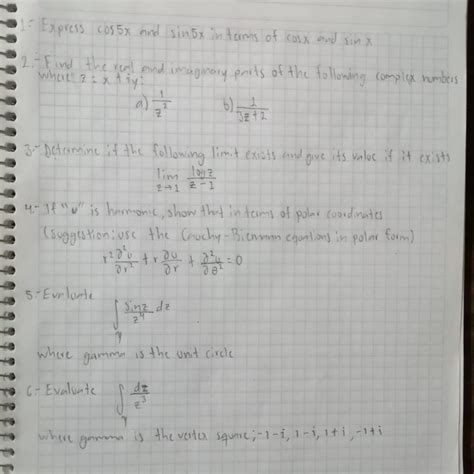 1.- Express cos5x and sin5x in terms of cosx and sin x
2.- Find the real and imaginary parts of the following complex numbers
where z = x + iy:
a) 1/z² b) 1/3z+2
3.- Determine if the following limit exists and give its value if it exists
lim z→1 log z/z-1
4.- If "u" is harmonic, show that in terms of polar coordinates
(suggestion: use the Cauchy-Riemann equations in polar form)
r² ∂²u/∂r² + r ∂u/∂r + ∂²u/∂θ² = 0
5.- Evaluate
∫γ sin z/z⁴ dz
where gamma is the unit circle
6.- Evaluate ∫γ dz/z³
where gamma is the vertex square; -1-i, 1-i, 1+i, -1+i